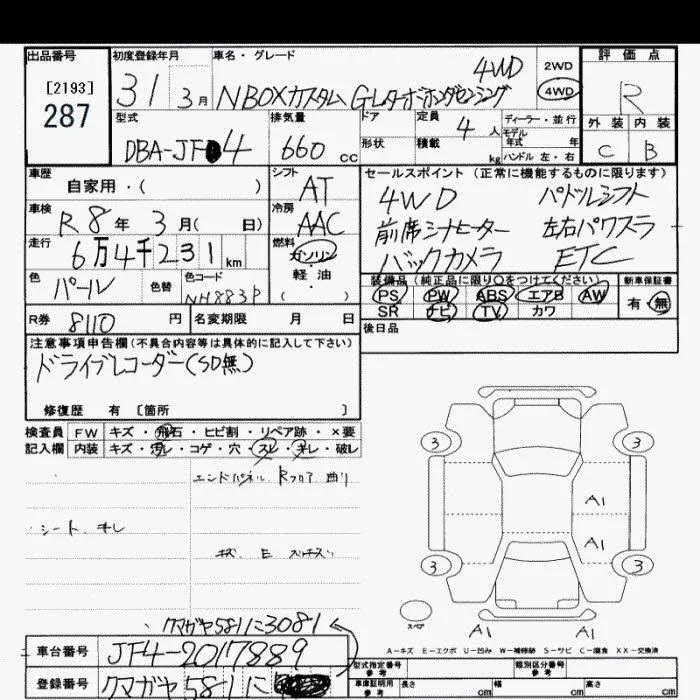 出品番号 初度登録年月 車名・グレード 評価点
[2193]
287
31 3月 NBOXカスタム GLターボホンダセンシング 4WD
2WD
4WD
R
型式 排気量 ドア 定員 ディーラー・並行
DBA-JF4 660cc 4人 モデル 年式 年
形状 積載 kg ハンドル 左・右
外装 内装
C B
車歴 シフト セールスポイント (正常に機能するものに限ります)
自家用・( ) AT
4WD パドルシフト
車検 冷房
R8年3月( 日) AAC
前席シートヒーター 左右パワスラ
走行 燃料
6万4千231km ガソリン
バックカメラ ETC
軽・油
・( )
色 色替 色コード
パール NH883P
装備品 (純正品に限り○をつけてください) 新車保証書
PS PW ABS エアB AW 有・無
SR ナビ TV カワ
R券 8110円 名変期限 月 日
後日品
注意事項申告欄(不具合内容等は具体的に記入して下さい)
ドライブレコーダー(SD無)
修復歴 有 [箇所 ]
検査員 FW キズ・飛石・ヒビ割・リペア跡・×要
記入欄 内装 キズ・汚レ・コゲ・穴・スレ・キレ・破レ
エンドパネル Rフロア 曲り
シート キレ
3 3
A1
A1
3 3
スペア
A1 A1
クマガヤ581に3081
A-キズ E-エクボ U-凹み W-補修跡 S-サビ C-腐食 XX-交換済
車台番号 JF4-2017889
型式指定番号 参考 類別区分番号 参考
登録番号 クマガヤ581に
車庫証明用 参考 長さ cm 幅 cm 高さ cm